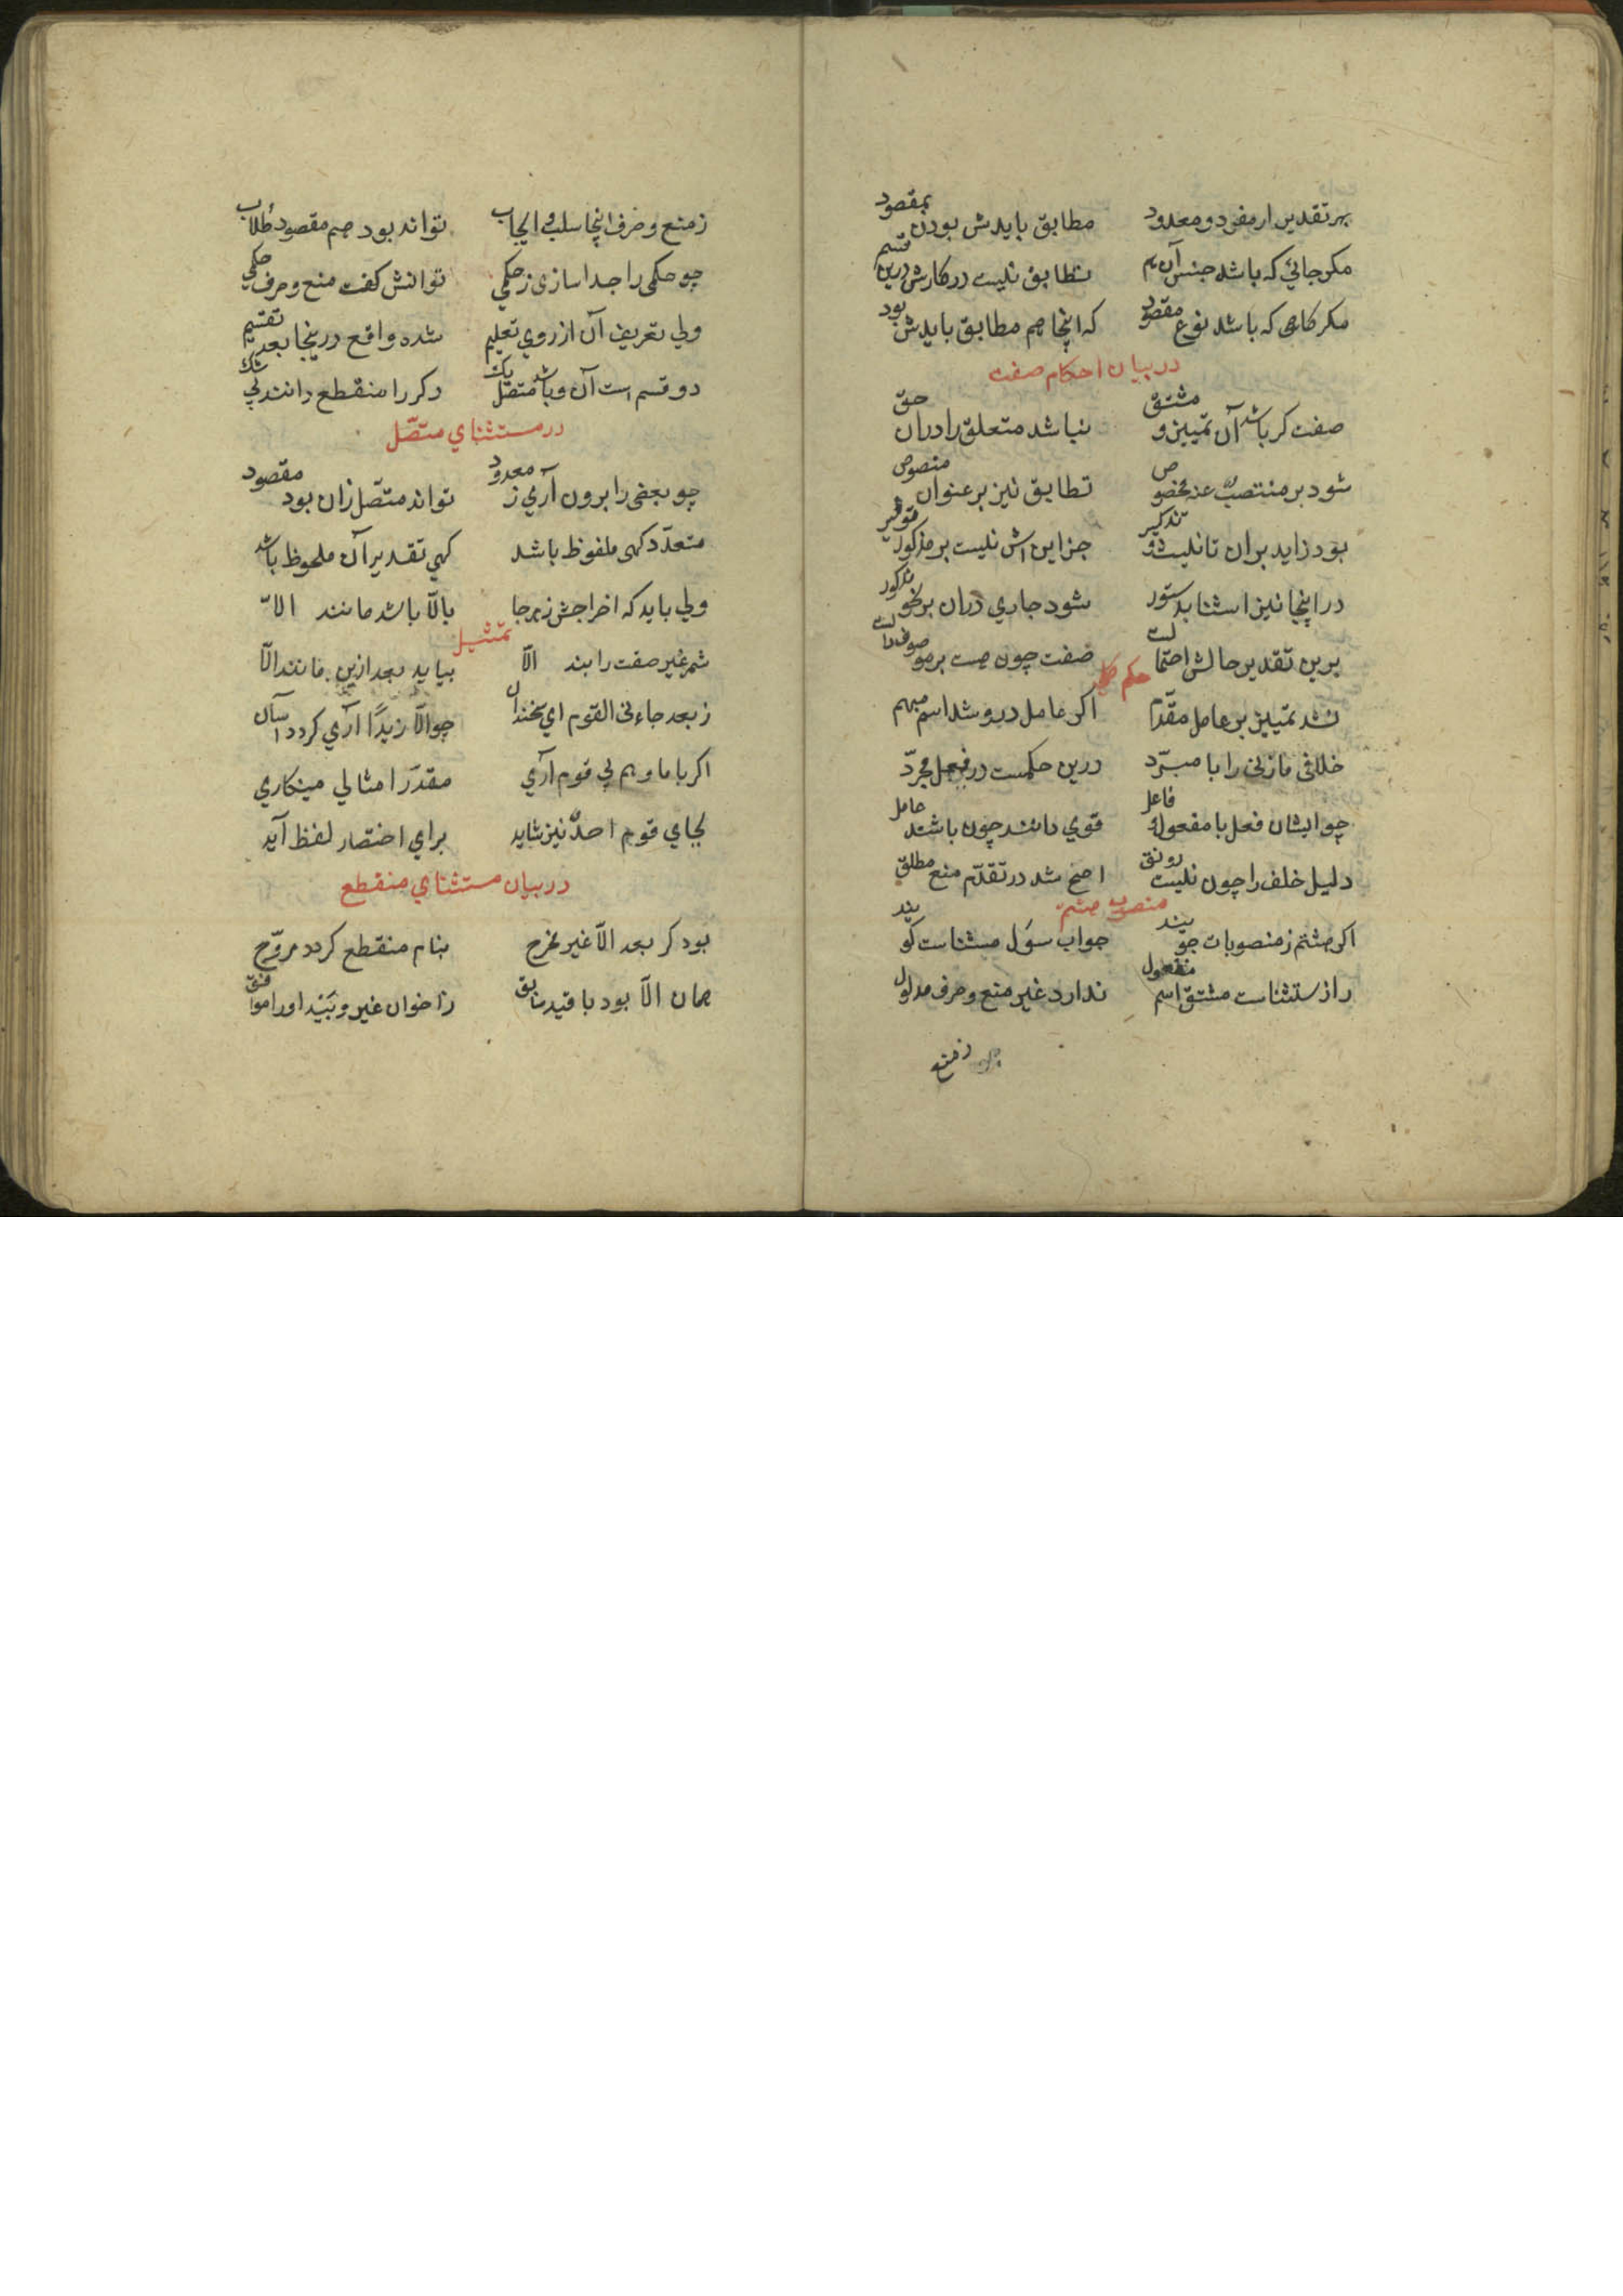 بهر تقدیر ار مفرد و معدود مطابق بایدش بودن بمقصود
مکر جائی که باشد جنس آن هم تطابق نیست در کارش درین قسم
مکر کاهی که باشد نوع مقصود که اینجا هم مطابق بایدش بود
در بیان احکام صفت
صفت کر باشد آن تمییز و مشتق نباشد متعلق را دران حق
شود بر منتصب عنه مخصوص تطابق نیز بر عنوان منصوص
بود زاید بران تانیث و تذکیر جز این اش نیست بر مذکور توقیر
در اینجا نیز استثنا بدستور شود جاری دران بر نحو مذکور
برین تقدیر حالش احتمالست صفت چون هست بر موصوف دالست
حکم
نشد تمییز بر عامل مقدم اکر عامل درو شد اسم مبهم
خلافی مازنی را با مبرّد درین حکمست در فعل مجرّد
چو ایشان فعل با مفعول و فاعل قوی دانند چون باشند حامل
دلیل خلف را چون نیست رونق اصح شد در تقدّم منع مطلق
منصوب هشتم
اکر هشتم ز منصوبات جویند جواب سؤل مستثناست کویند
راز ستثناست مشتق اسم مفعول ندارد غیر منع و صرف مدلول
ز منع
ز منع و صرف اینجا سلب و ایجاب تواند بود هم مقصود طلاب
چو حکمی را جدا سازی ز حکمی توانش کفت منع و صرف حکمی
ولی تعریف آن از روی تعلیم شده واقع درینجا بعد تقسیم
دو قسم است آن و باشد متصل یک دکر را منقطع دانند بی شک
در مستثنای متصّل
چو بعضی را برون آری ز معدود تواند متصّل زان بود مقصود
متعدّد کهی ملفوظ باشد کهی تقدیر آن ملحوظ باشد
ولی باید که اخراجش ز هر جا بالّا باشد مانند الاّ
تمثیل
شمر غیر صفت را بند الّا بیاید بعد ازین مانند الّا
ز بعد جاءنی القوم ای سخندان چو الّا زیدًا آری کردد آسان
اکر با ما و هم بی قوم آری مقدّر را مثالی مینکاری
بجای قوم احدٌ نیز شاید برای اختصار لفظ آید
در بیان مستثنای منقطع
بود کر بعد الّا غیر مخرج بنام منقطع کردد مروّج
همان الّا بود با قید سابق ز اخوان غیر و بَیْد اورا موافق